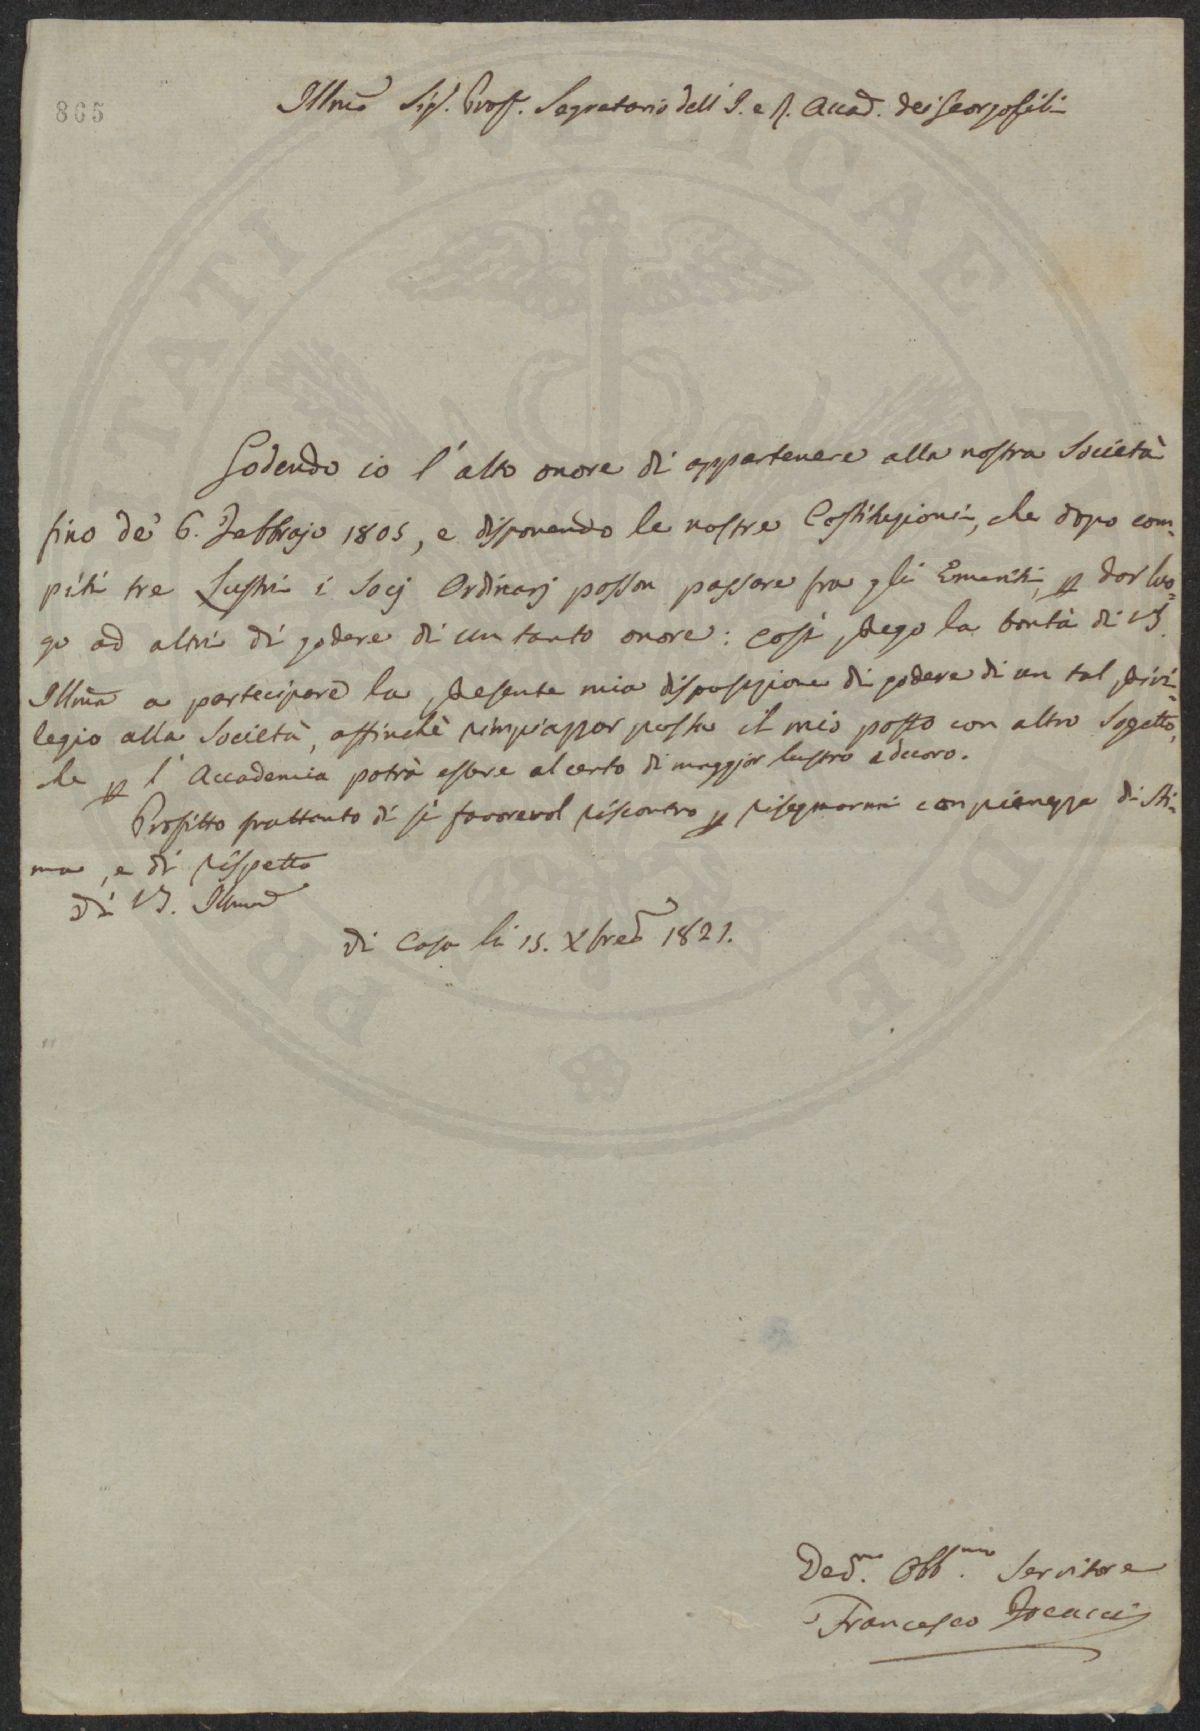 865
Illmo Sig.r Prof. Segretario dell' I. e R. Accad. dei Georgofili
Godendo io l'alto onore di appartenere alla nostra Società
fino de' 6. Febbrajo 1805, e disponendo le nostre Costituzioni, che dopo com-
piti tre Lustri i Socj Ordinarj posson passare fra gli Emeriti, p dar luo-
go ad altri di godere di un tanto onore: così prego la bontà di VS.
Illma a partecipare la presente mia disposizione di godere di un tal privi-
legio alla Società, affinchè rimpiazzar possa il mio posto con altro Sogetto,
che p l'Accademia potrà essere al certo di maggior lustro e decoro.
Profitto frattanto di sì favorevol riscontro p risegnarmi con pienezza di sti-
ma, e di rispetto
Di VS. Illma
di Casa li 15. Xbre 1821.
Ded.mo Obb.mo Servitore
Francesco
PUBLICAE